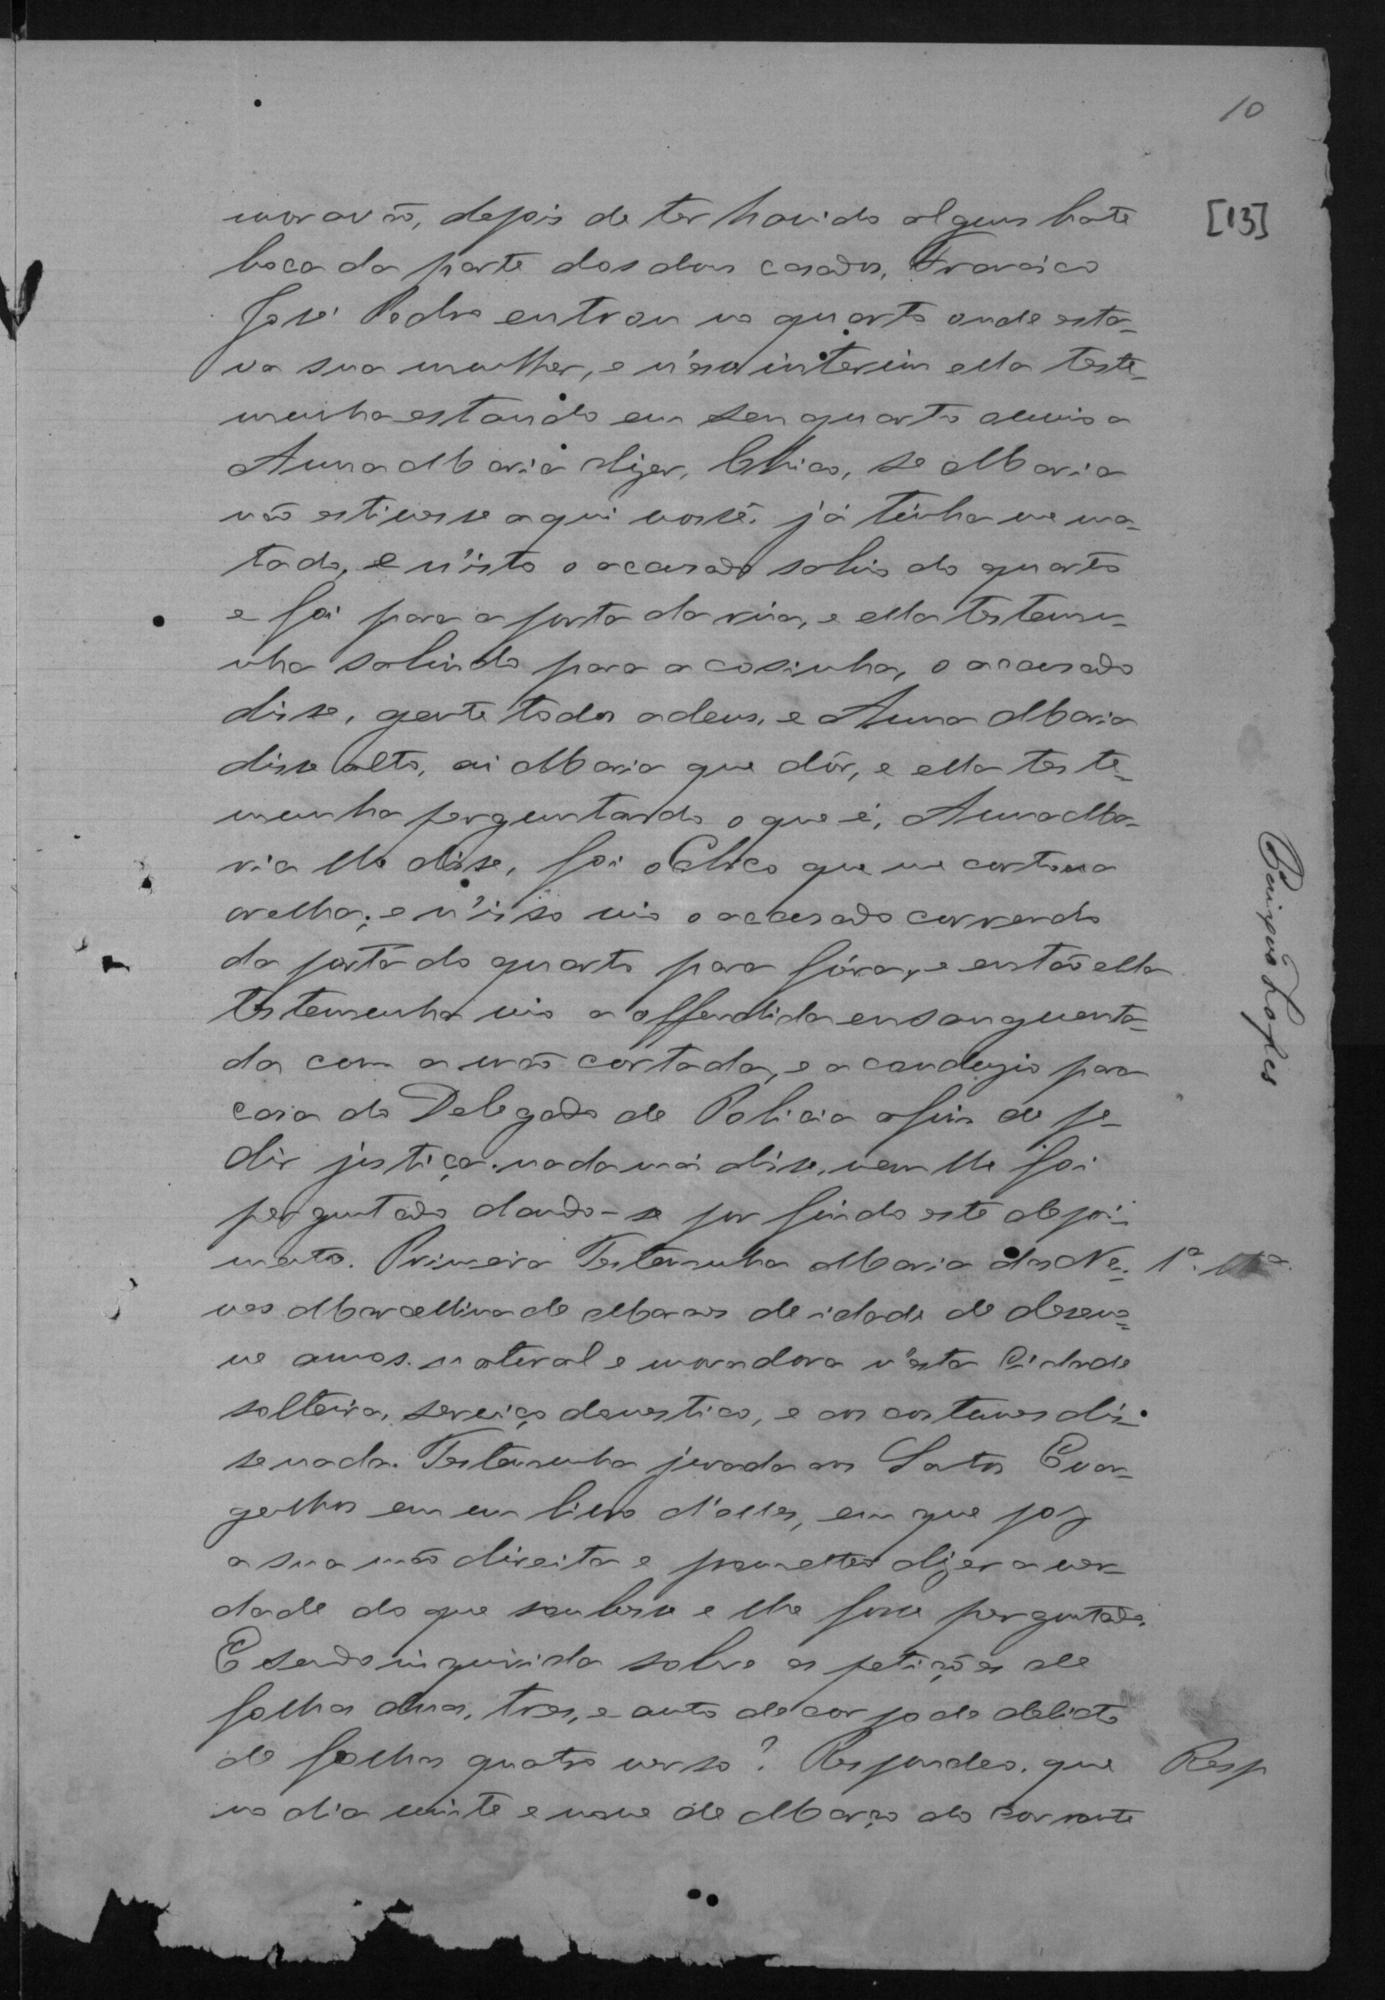 10
[13]
moravão, depois de ter havido alguns bate
boca da parte dos dous casados, Francisco
José Pedro entrou no quarto onde esta-
va sua mulher, e n'esse interim ella teste-
munha estando em seu quarto ouvio a
Anna Maria dizer, Chico, se Maria
não estivesse aqui vossê já tinha me ma-
tado, e n'isto o accusado sahio do quarto
e foi para a porta da rua, e ella testemu-
nha sahindo para a cosinha, o accusado
disse, gente todos adeus, e Anna Maria
disse alto, ai Maria que dôr, e ella teste-
munha perguntando o que é, Anna Ma-
ria lhe disse, foi o Chico que me cortou a
orelha; e n'isso vio o accusado correndo
da porta do quarto para fóra, e então ella
testemunha vio a offendida ensanguenta-
da com a mão cortada, e a condusio para
casa do Delegado de Policia afim de pe-
dir justiça. nada mais disse, nem lhe foi
perguntado dando-se por findo este depoi-
mento. Primeira Testemunha Maria das Ne-
ves Marcellina de Moraes de idade de deseno-
ve annos. natural e moradora n'esta Cidade
solteira, serviço domestico, e aos costumes dis-
se nada. Testemunha jurada aos Santos Evan-
gelhos em um livro d'elles, em que poz
a sua mão direita e prometteo dizer a ver-
dade do que soubesse e lhe fosse perguntado.
E sendo inquirida sobre as petições de
folhas duas, tres, e auto de corpo de delicto
de folhas quatro verso? Respondeo, que
no dia vinte e nove de Março do corrente
1ª
Resp
Lopes